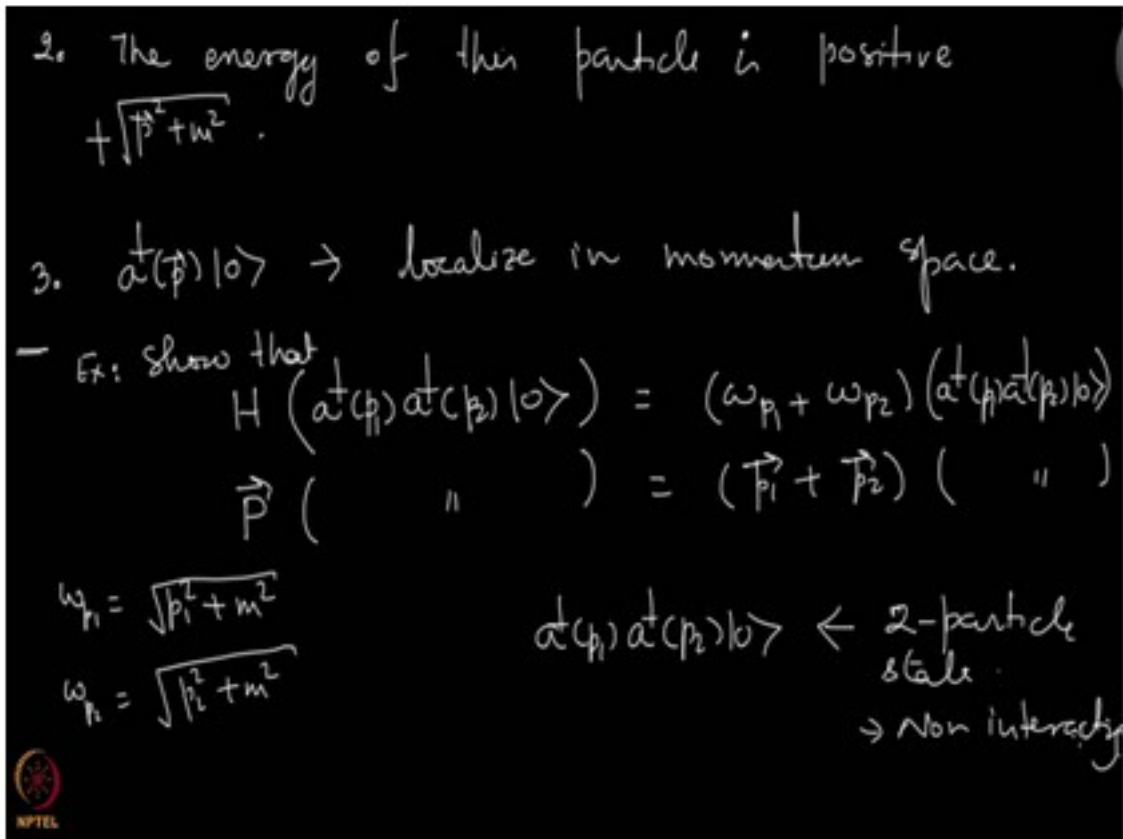 2. The energy of this particle is positive
+√(p⃗² + m²) .
3. a†(p⃗)|0⟩ → localize in momentum space.
– Ex: Show that
H (a†(p₁) a†(p₂) |0⟩) = (ω_p₁ + ω_p₂) (a†(p₁) a†(p₂)|0⟩)
P⃗ ( " ) = (p⃗₁ + p⃗₂) ( " )
ω_p₁ = √(p₁² + m²)
ω_p₂ = √(p₂² + m²)
a†(p₁) a†(p₂)|0⟩ ← 2-particle
state.
→ Non interacting
NPTEL